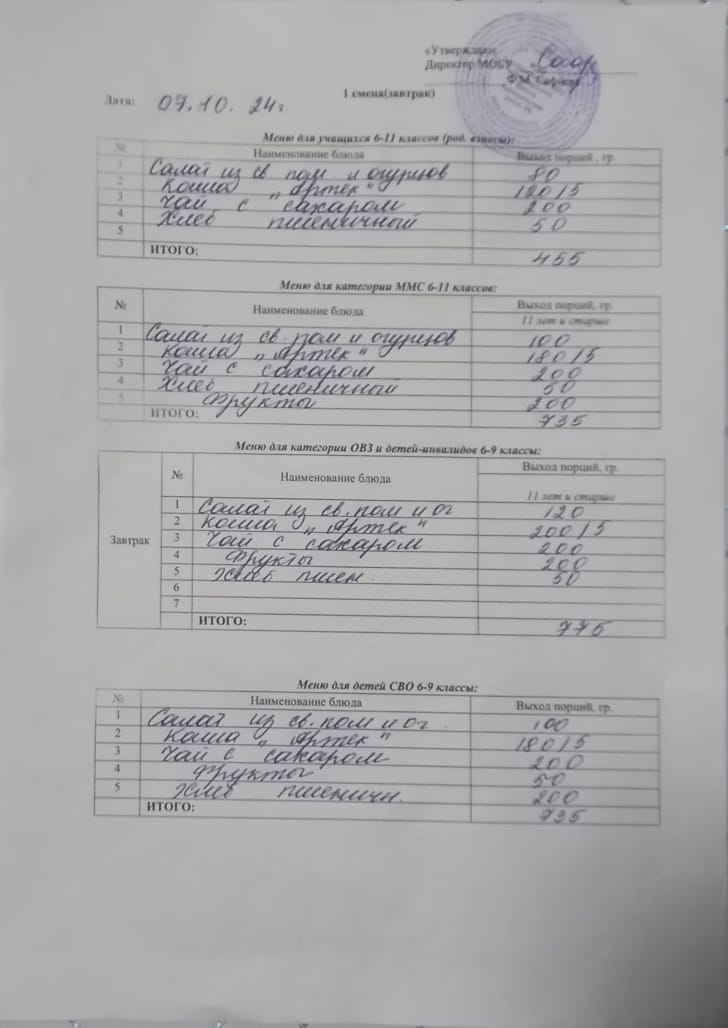 «Утверждаю»
Директор МОБУ
Ф.М.
1 смена(завтрак)
Дата: 07.10.24г.
Меню для учащихся 6-11 классов (род. взносы):
№ Наименование блюда Выход порций , гр.
1 Салат из св пом и огурцов 80
2 Каша „Артек“ 120/5
3 Чай с сахаром 200
4 Хлеб пшеничный 50
5
ИТОГО: 455
Меню для категории ММС 6-11 классов:
№ Наименование блюда Выход порций, гр.
11 лет и старше
1 Салат из св. пом и огурцов 100
2 Каша „Артек“ 180/5
3 Чай с сахаром 200
4 Хлеб пшеничный 50
5 Фрукты 200
ИТОГО: 735
Меню для категории ОВЗ и детей-инвалидов 6-9 классы:
№ Наименование блюда Выход порций, гр.
11 лет и старше
Завтрак
1 Салат из св. пом и ог 120
2 Каша „Артек“ 200/5
3 Чай с сахаром 200
4 Фрукты 200
5 Хлеб пшен. 50
6
7
ИТОГО: 775
Меню для детей СВО 6-9 классы:
№ Наименование блюда Выход порций, гр.
1 Салат из св. пом и ог 100
2 Каша „Артек“ 180/5
3 Чай с сахаром 200
4 Фрукты 50
5 Хлеб пшеничн. 200
ИТОГО: 735